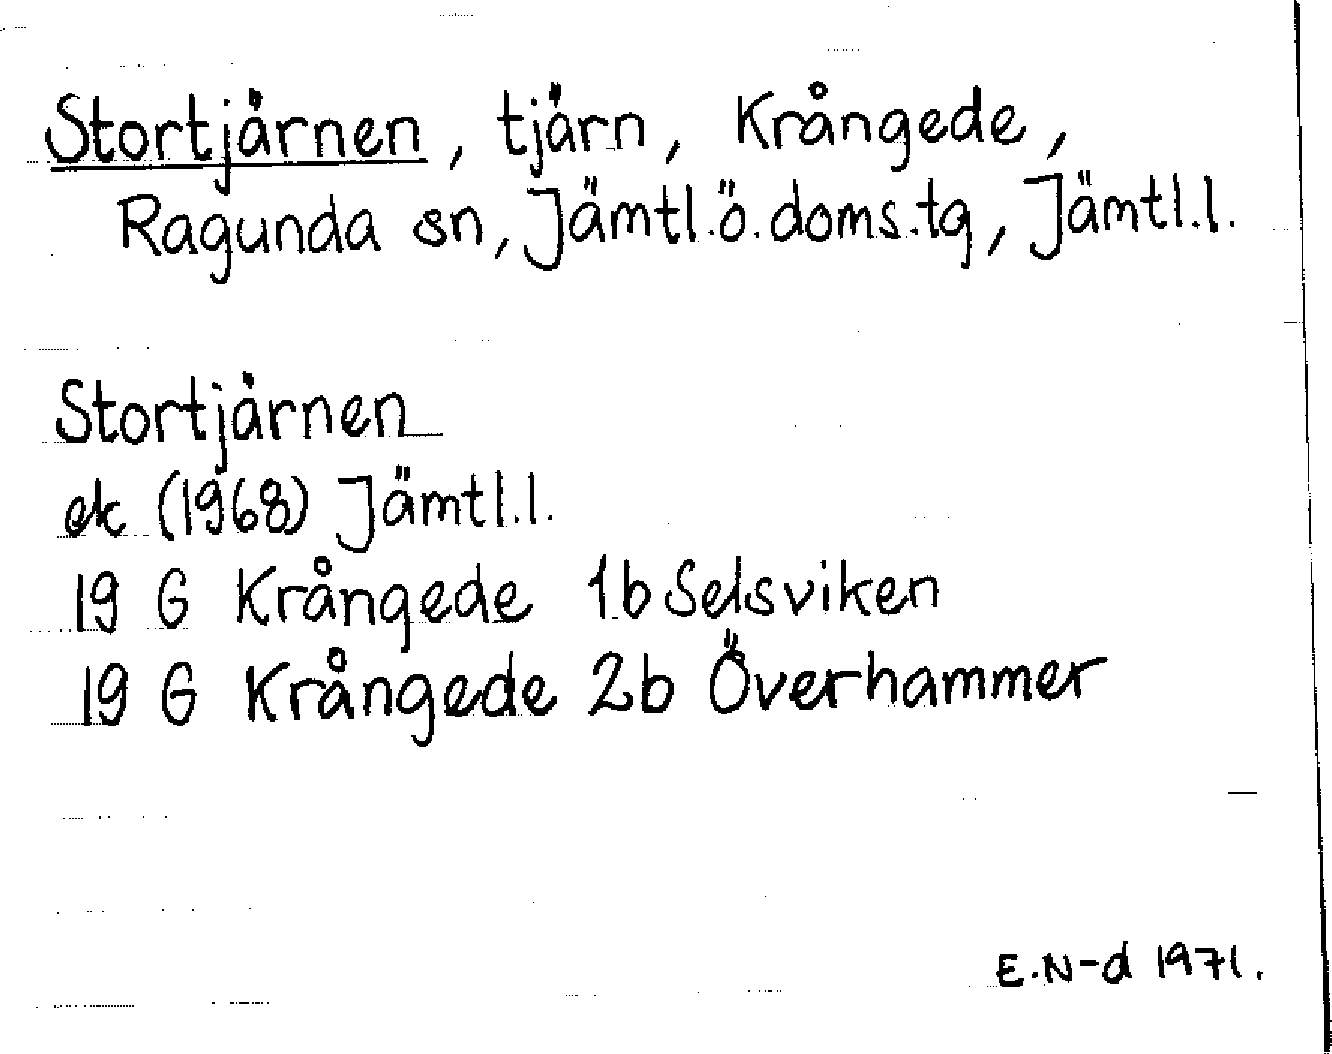 Stortjärnen, tjärn, Krångede,
Ragunda sn, Jämtl.ö.doms.tg, Jämtl.l.
Stortjärnen
ek (1968) Jämtl.l.
19 G Krångede 1b Selsviken
19 G Krångede 2b Överhammer
E.N-d 1971.